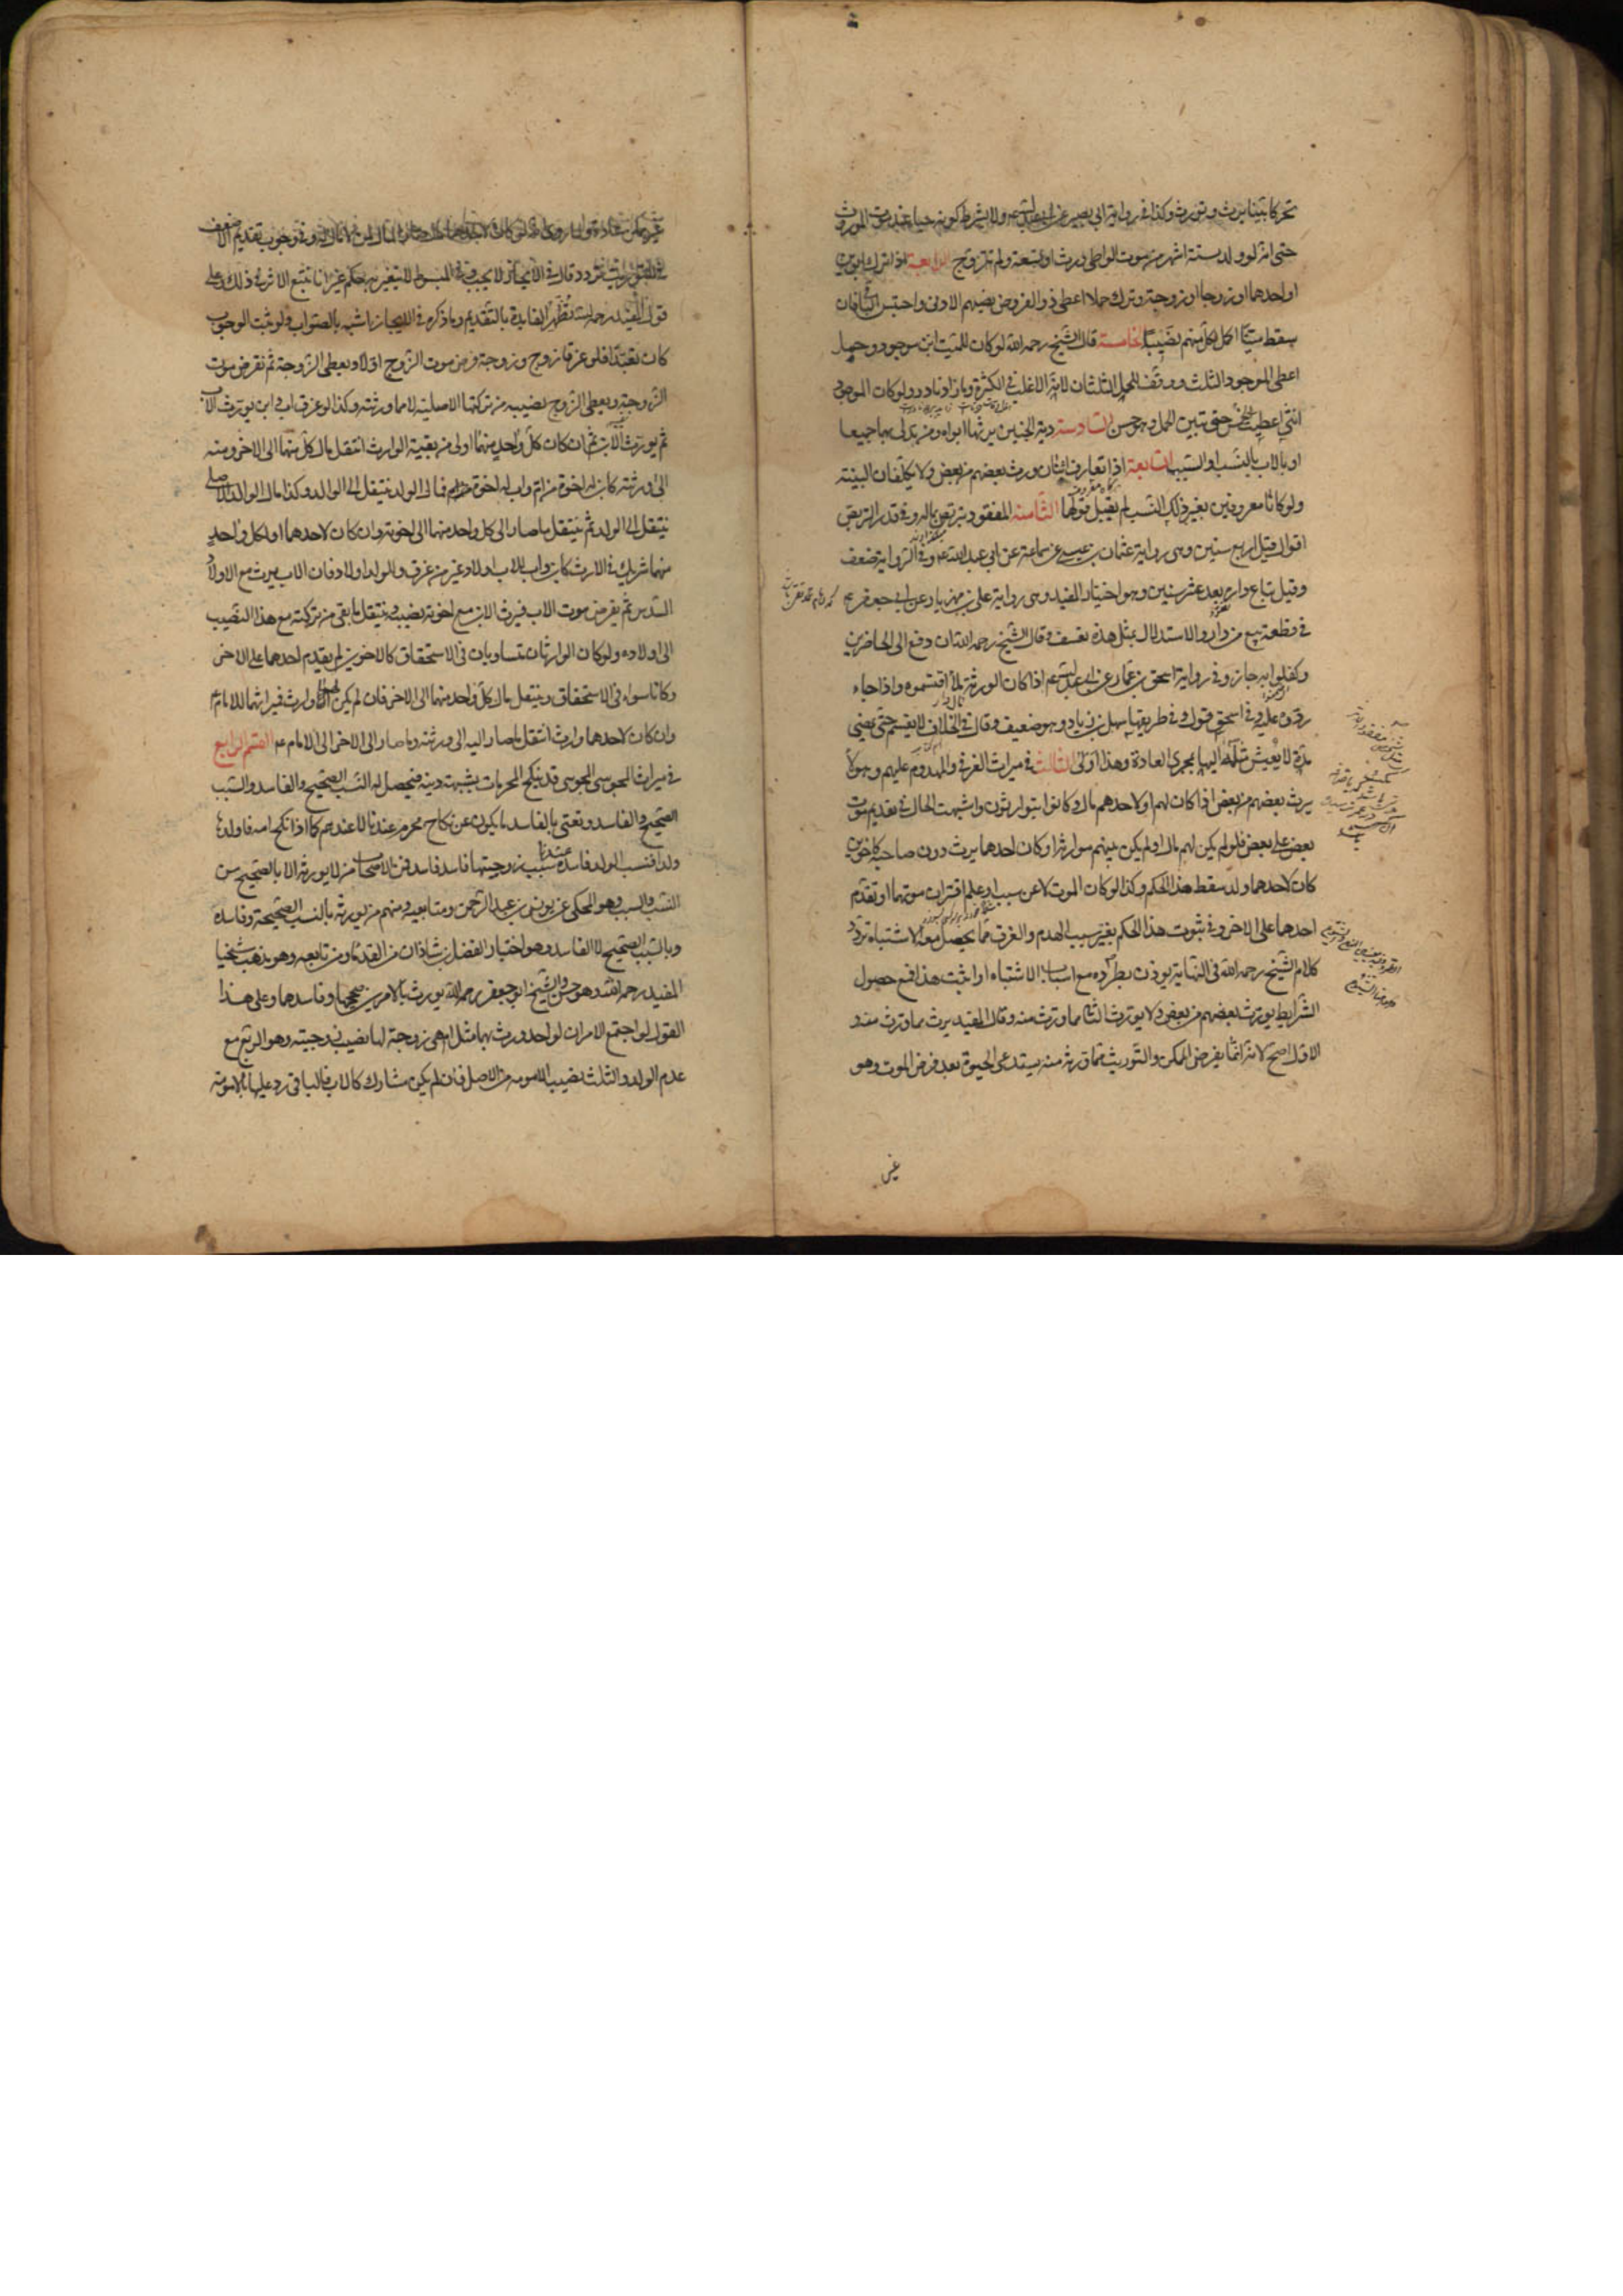 تحركا بينا يرث ويورث وكذا في رواية ابي بصير عن ابي عبد الله عم ولا يشترط كونه حيا عند موت المورث
حتى انه لو ولد لستة اشهر من موت الواطي ورث او لتسعة ولم تتزوج الرابعة اذا ترك ابوين
او احدهما او زوجا او زوجة وترك حملا اعطي ذو الفروض نصيبهم الادنى واحتبس الباقي فان
سقط ميتا اكمل لكل منهم نصيبه الخامسة قال الشيخ رحمه الله لو كان للميت ابن موجود وحمل
اعطي الموجود الثلث ووقف للحمل الثلثان لانه الاغلب في الكثرة وما زاد نادر ولو كان الموجود
انثى اعطيت الخمس حتى تبين الحمل وهو حسن السادسة دية الجنين يرثها ابواه ومن يتقرب بهما جميعا
او بالاب بالنسب او السبب السابعة اذا تعارف اثنان ورث بعضهم من بعض ولا يكلفان البينة
ولو كانا معروفين بغير ذلك النسب لم يقبل قولهما الثامنة المفقود يتربص بماله وفي قدر التربص
اقوال قيل اربع سنين وهي رواية عثمان بن عيسى عن سماعة عن ابي عبد الله عم وفي الرواية ضعف
وقيل تباع داره بعد عشر سنين وهو اختيار المفيد وهي رواية علي بن مهزيار عن ابي جعفر عم
في بيع قطعة من داره والاستدلال بمثل هذه تعسف وقال الشيخ رحمه الله ان دفع الى الحاضرين
وكفلوا به جاز وفي رواية اسحق بن عمار عن ابي عبد الله عم اذا كان الورثة ملاء اقتسموه واذا جاء
ردوه عليه وفي اسحق قول وفي طريقها سهل بن زياد وهو ضعيف وقال في الخلاف لا يقسم حتى يمضي
مدة لا يعيش مثله اليها بمجرى العادة وهذا اولى الثالث في ميراث الغرقى والمهدوم عليهم وهولاء
يرث بعضهم من بعض اذا كان لهم او لاحدهم مال وكانوا يتوارثون واشتبهت الحال في تقديم موت
بعض على بعض فلو لم يكن لهم مال او لم يكن بينهم موارثة او كان احدهما يرث دون صاحبه كاخوين
كان لاحدهما ولد سقط هذا الحكم وكذا لو كان الموت لا عن سبب او علم اقتران موتهما او تقدم
احدهما على الاخر وفي ثبوت هذا الحكم بغير سبب الهدم والغرق مما يحصل معه الاشتباه تردد
كلام الشيخ رحمه الله في النهاية يوذن بطرده مع اسباب الاشتباه اذا ثبت هذا فمع حصول
الشرايط يورث بعضهم من بعض ولا يورث الثاني مما ورث منه وقال المفيد يرث مما ورث منه و
الاول اصح لانه انما يفرض الممكن والتوريث مما ورثه منه يستدعي الحيوة بعد فرض الموت وهو
غير
غير ممكن عادة ولما روي انه لو كان لاحدهما مال صار المال لمن لا مال له وفي وجوب تقديم الاضعف
في التوريث تردد وقال في الايجاز لا يجب وفي المبسوط لا يتغير به حكم غير انا نتبع الاثر في ذلك وعلى
قول المفيد رحمه الله تظهر الفايدة بالتقديم وما ذكره في الايجاز اشبه بالصواب ولو ثبت الوجوب
كان تعبدا فلو غرق زوج وزوجة فرض موت الزوج اولا ويعطى الزوجة ثم نفرض موت
الزوجة ويعطى الزوج نصيبه من تركتها الاصلية لا مما ورثته وكذا لو غرق اب وابن يورث الاب
ثم يورث الابن ثم ان كان كل واحد منهما اولى من بقية الوارث انتقل مال كل منهما الى الاخر ومنه
الى ورثته كابن له اخوة من ام واب له اخوة فمال الولد ينتقل الى الوالد وكذا مال الوالد الاصلي
ينتقل الى الولد ثم ينتقل ما صار الى كل واحد منهما الى اخوته وان كان لاحدهما او لكل واحد
منهما شريك في الارث كابن واب للاب اولاد غير من غرق وللولد اولاد فان الاب يرث مع الاولاد
السدس ثم يفرض موت الاب فيرث الابن مع اخوته نصيبه وينتقل ما بقي من تركته مع هذا النصيب
الى اولاده ولو كان الوارثان متساويان في الاستحقاق كالاخوين لم يقدم احدهما على الاخر
وكانا سواء في الاستحقاق وينتقل مال كل واحد منهما الى الاخر فان لم يكن لهما وارث فميراثهما للامام
وان كان لاحدهما وارث انتقل ما صار اليه الى ورثته وما صار الى الاخر الى الامام عم القسم الرابع
في ميراث المجوسي المجوسي قد ينكح المحرمات بشبهة دينه فيحصل له النسب الصحيح والفاسد والسبب
الصحيح والفاسد ونعني بالفاسد ما يكون عن نكاح محرم عندنا لا عندهم كما اذا نكح امه فاولدها
ولدا فنسب الولد فاسد وسبب زوجيتها فاسد فمن الاصحاب من لا يورثه الا بالصحيح من
النسب والسبب وهو المحكي عن يونس بن عبد الرحمن ومتابعيه ومنهم من يورثه بالنسب الصحيحة وفاسده
وبالسبب الصحيح لا الفاسد وهو اختيار الفضل بن شاذان من القدماء ومن تابعه وهو مذهب شيخنا
المفيد رحمه الله وهو حسن والشيخ ابو جعفر رحمه الله يورث بالامرين صحيحهما وفاسدهما وعلى هذا
القول لو اجتمع الامران لواحد ورث بهما مثل ام هي زوجة لها نصيب زوجيته وهو الربع مع
عدم الولد والثلث نصيب الامومة من الاصل فان لم يكن مشارك كالاب فالباقي رد عليها بالامومة